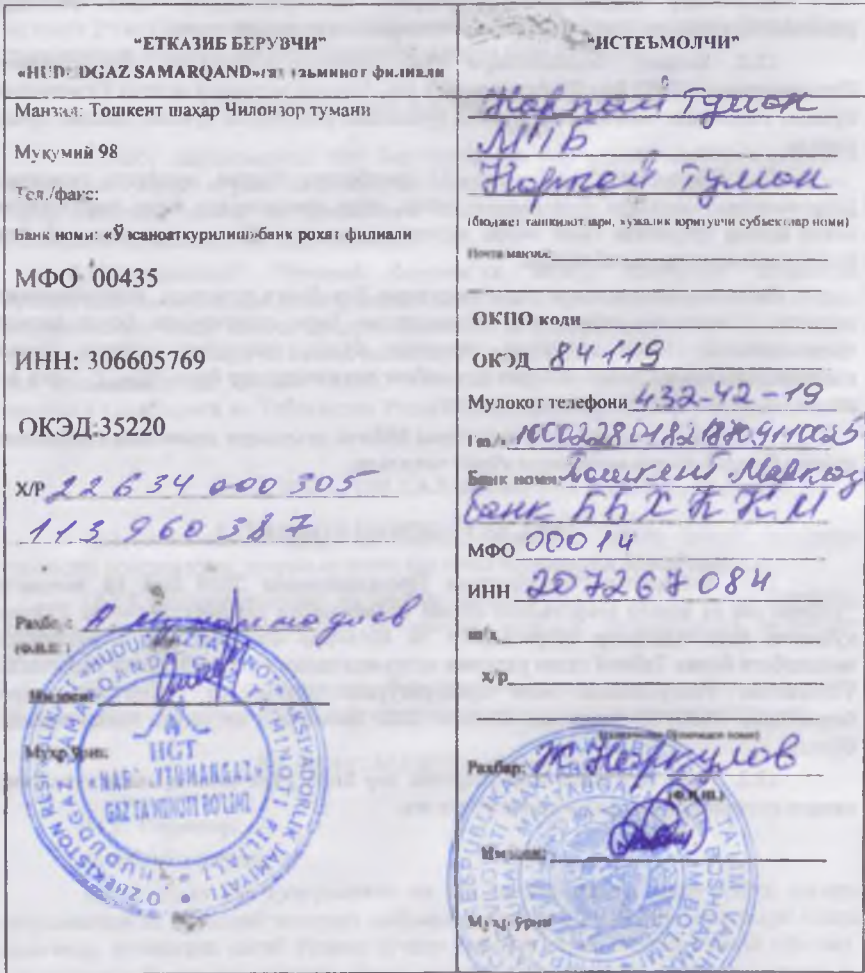 "ЕТКАЗИБ БЕРУВЧИ"
SAMARQAND» филиали
Манзил: Тошкент шаҳар Чилонзор тумани
Муқумий 98
Тел./факс:
Банк номи: «Ўзсаноатқурилиш»банк рохат филиали
МФО 00435
ИНН: 306605769
ОКЭД:35220
Х/Р 22634000305
113960387
Раҳбар:
(Ф.И.Ш.)
Имзоси:
Муҳр ўрни:
HGT
GAZ TAMINOTI BO'LIMI
"ИСТЕЪМОЛЧИ"
Норпай Туман
МТБ
Норпай Туман
(бюджет ташкилотлари, хўжалик юритувчи субъектлар номи)
Почта манзил:
ОКПО коди
ОКЭД 84119
Мулоқот телефони 432-42-19
Банк номи: Тошкент Марказ
банк ББ ХККМ
МФО 00014
ИНН 207267084
ш/х
х/р
Раҳбар: Ж. Норқулов
(Ф.И.Ш.)
Имзоси:
Муҳр ўрни